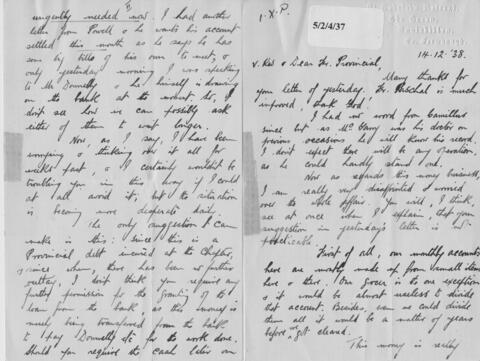 I.X.P.
5/2/4/37
14-12-'38.
v. Rev. & Dear Fr. Provincial,
Many thanks for
your letter of yesterday. Fr. Paschal is much
improved, thank God!
I had no word from Camillus
since but as Mc Garry was his doctor on
previous occasions, he will know his record.
I don't expect there will be any operation
as he could hardly stand one.
Now as regards this money business,
I am really very disappointed & worried
over the whole affair. You will, I think,
see at once when I explain, that your
suggestion in yesterday's letter is not
practicable.
First of all, our monthly accounts
here are mostly made up from small items
here & there. Our grocer is the one exception
& it would be almost useless to divide
that account. Besides, even we could divide
them all it would be a matter of years
before we got cleared.
This money is really
urgently needed now. I had another
letter from Powell & he wants his account
settled this month as he says he has
som big bills of his own to meet, &
only yesterday morning I was speaking
to Mr Donnelly & he himself is drawing
on the bank at the moment. So, I
don't see how we can possibly ask
either of them to wait longer.
Now, as I say, I have been
worrying & thinking over it all for
weeks past, & I certainly wouldn't be
troubling you in this way if I could
at all avoid it, but the situation
is becoming more desperate daily.
The only suggestion I can
make is this: since this is a
Provincial debt incurred at the Chapter,
& since when, there has been no further
outlay, I don't think you require any
further permission for the granting of a
loan from the bank, as this money is
merely being transferred from the bank
to pay Donnelly etc for the work done.
Should you require the cash later on